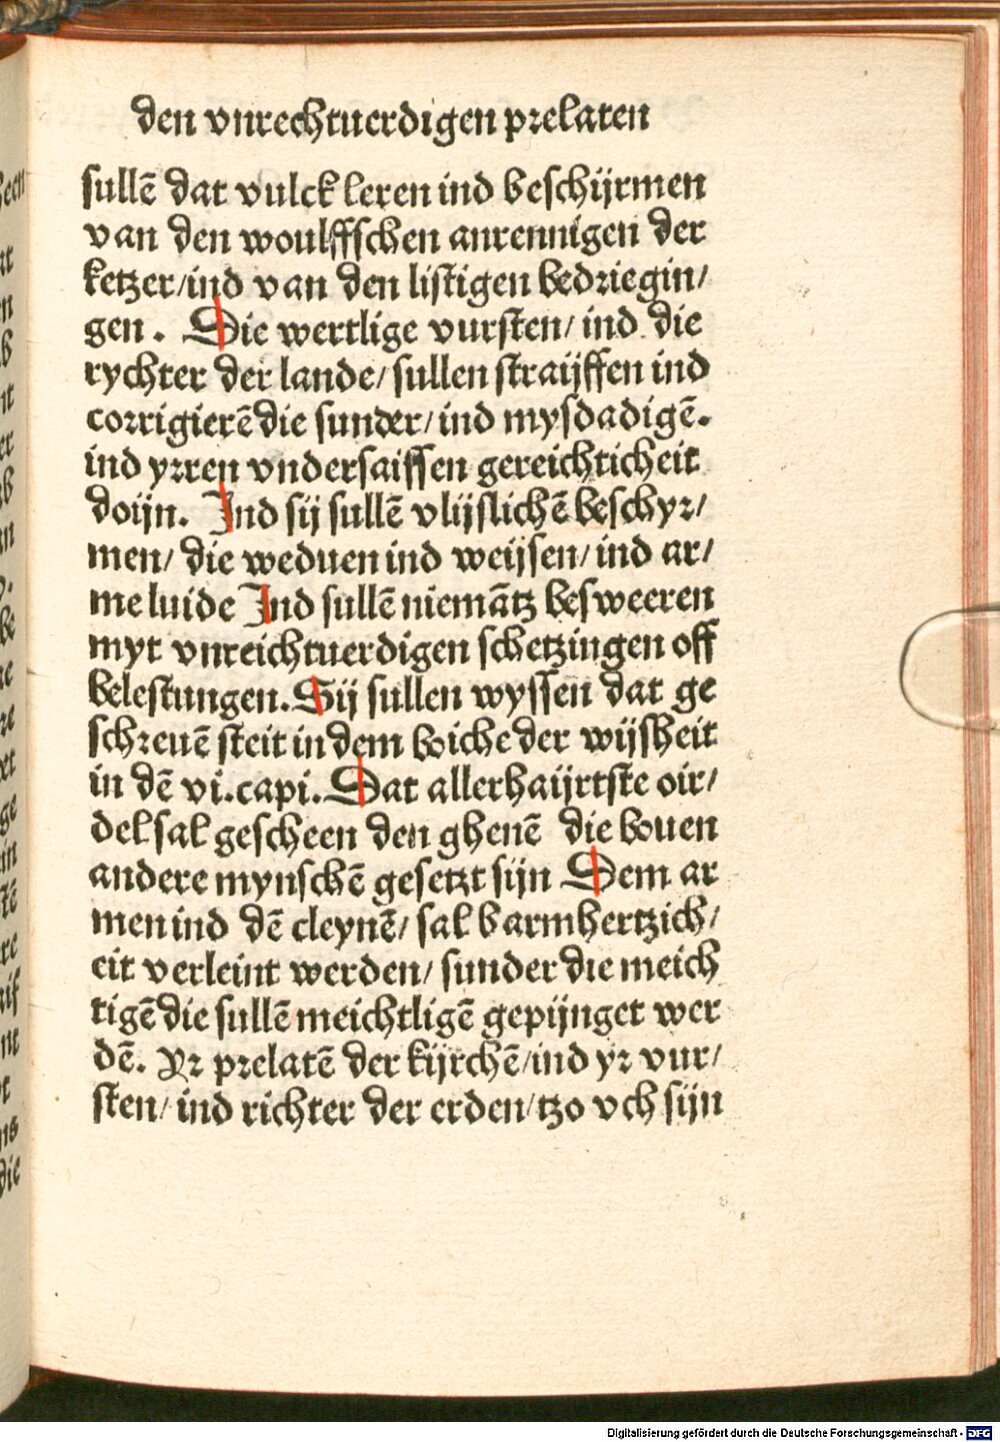 den vnrechtuerdigen prelaten
sullē dat vulck leren ind beschijrmen
van den woulffschen anrennigen der
ketzer/ind van den listigen bedriegin/
gen. Die wertlige vursten/ ind die
rychter der lande/ sullen straijffen ind
corrigierē die sunder/ ind mysdadigē.
ind yrren vndersaissen gereichticheit
doijn. Ind sij sullē vlijslichē beschyr/
men/ die weduen ind weijsen/ ind ar/
me luide Ind sullē niemātz besweeren
myt vnreichtuerdigen schetzingen off
belestungen. Sij sullen wyssen dat ge
schreuē steit in dem boiche der wijsheit
in dē vi. capi. Dat allerhaijrtste oir/
del sal gescheen den ghenē die bouen
andere mynschē gesetzt sijn Dem ar
men ind dē cleynē/ sal barmhertzich/
eit verleint werden/ sunder die meich
tigē die sullē meichtligē gepijnget wer
dē. Yr prelatē der kijrchē/ind yr vur/
sten/ ind richter der erden/tzo vch sijn
Digitalisierung gefördert durch die Deutsche Forschungsgemeinschaft - DFG